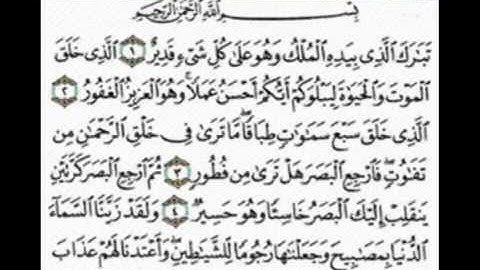 بِسْمِ ٱللَّهِ ٱلرَّحْمَـٰنِ ٱلرَّحِيمِ
تَبَـٰرَكَ ٱلَّذِى بِيَدِهِ ٱلْمُلْكُ وَهُوَ عَلَىٰ كُلِّ شَىْءٍ قَدِيرٌ ١ ٱلَّذِى خَلَقَ
ٱلْمَوْتَ وَٱلْحَيَوٰةَ لِيَبْلُوَكُمْ أَيُّكُمْ أَحْسَنُ عَمَلًا ۚ وَهُوَ ٱلْعَزِيزُ ٱلْغَفُورُ ٢
ٱلَّذِى خَلَقَ سَبْعَ سَمَـٰوَٰتٍ طِبَاقًا ۖ مَّا تَرَىٰ فِى خَلْقِ ٱلرَّحْمَـٰنِ مِن
تَفَـٰوُتٍ ۖ فَٱرْجِعِ ٱلْبَصَرَ هَلْ تَرَىٰ مِن فُطُورٍ ٣ ثُمَّ ٱرْجِعِ ٱلْبَصَرَ كَرَّتَيْنِ
يَنقَلِبْ إِلَيْكَ ٱلْبَصَرُ خَاسِئًا وَهُوَ حَسِيرٌ ٤ وَلَقَدْ زَيَّنَّا ٱلسَّمَآءَ
ٱلدُّنْيَا بِمَصَـٰبِيحَ وَجَعَلْنَـٰهَا رُجُومًا لِّلشَّيَـٰطِينِ ۖ وَأَعْتَدْنَا لَهُمْ عَذَابَ